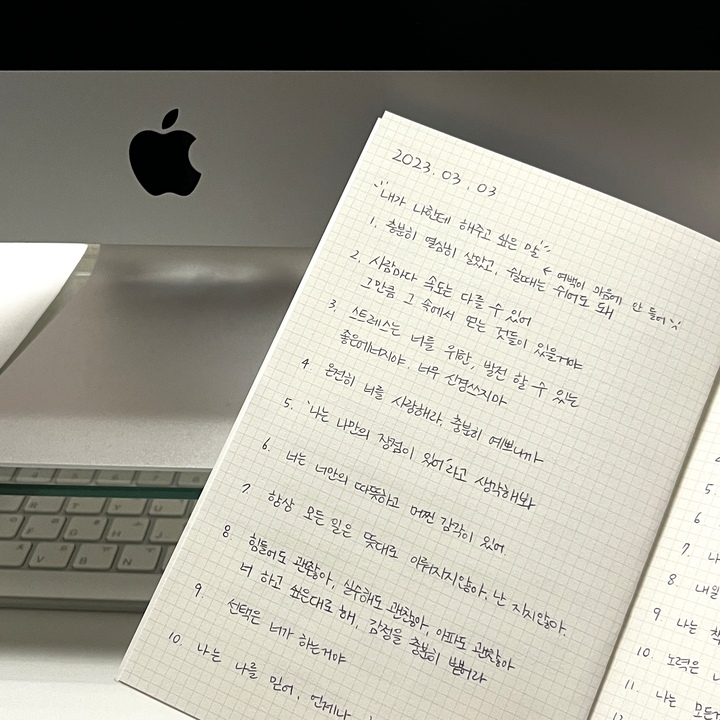 2023. 03. 03
"내가 나한테 해주고 싶은 말"
← 여백이 마음에 안 들어
1. 충분히 열심히 살았고, 쉴때는 쉬어도 돼
2. 사람마다 속도는 다를 수 있어
그만큼 그 속에서 얻는 것들이 있을거야
3. 스트레스는 너를 위한, 발전 할 수 있는
좋은에너지야, 너무 신경쓰지마
4. 온전히 너를 사랑해라, 충분히 예쁘니까
5. '나는 나만의 장점이 있어'라고 생각해봐
6. 너는 너만의 따뜻하고 멋찐 감각이 있어.
7. 항상 모든 일은 뜻대로 이뤄지지않아, 난 지지않아.
8 힘들어도 괜찮아, 실수해도 괜찮아, 아파도 괜찮아
너 하고 싶은대로 해, 감정을 충분히 뱉어라
9. 선택은 너가 하는거야
10. 나는 나를 믿어, 언제나
5
6
7. 나
8. 내일
9. 나는
10. 노력은
11. 나는 모든